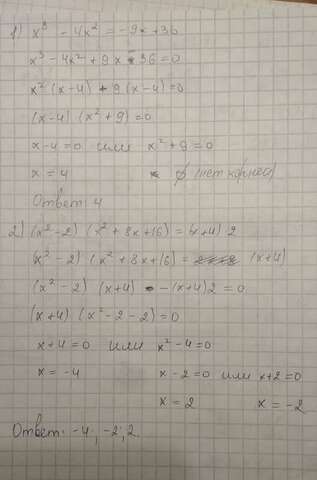 1) x³ - 4x² = -9x + 36
x³ - 4x² + 9x - 36 = 0
x² (x-4) + 9 (x-4) = 0
(x-4) (x² + 9) = 0
x-4 = 0 или x² + 9 = 0
x = 4 ∅ (нет корней)
Ответ: 4
2) (x² - 2) (x² + 8x + 16) = (x+4) 2
(x² - 2) (x² + 8x + 16) = (x+4)
(x² - 2) (x+4) - (x+4) 2 = 0
(x+4) (x² - 2 - 2) = 0
x + 4 = 0 или x² - 4 = 0
x = -4 x - 2 = 0 или x + 2 = 0
x = 2 x = -2
Ответ: -4; -2; 2.